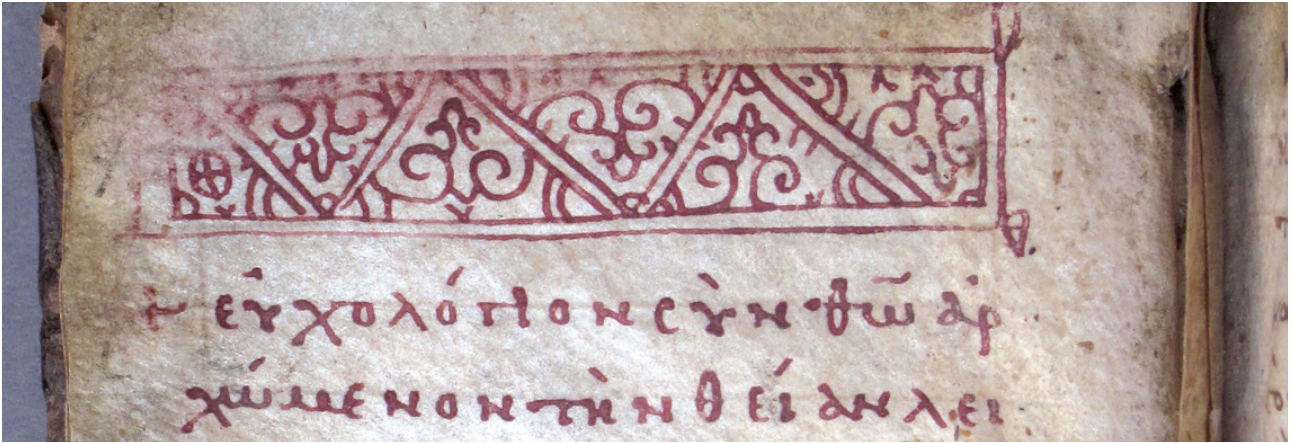 + εὐχολόγιον σὺν θω̄ ἀρ
χώμενον τὴν θείαν λει